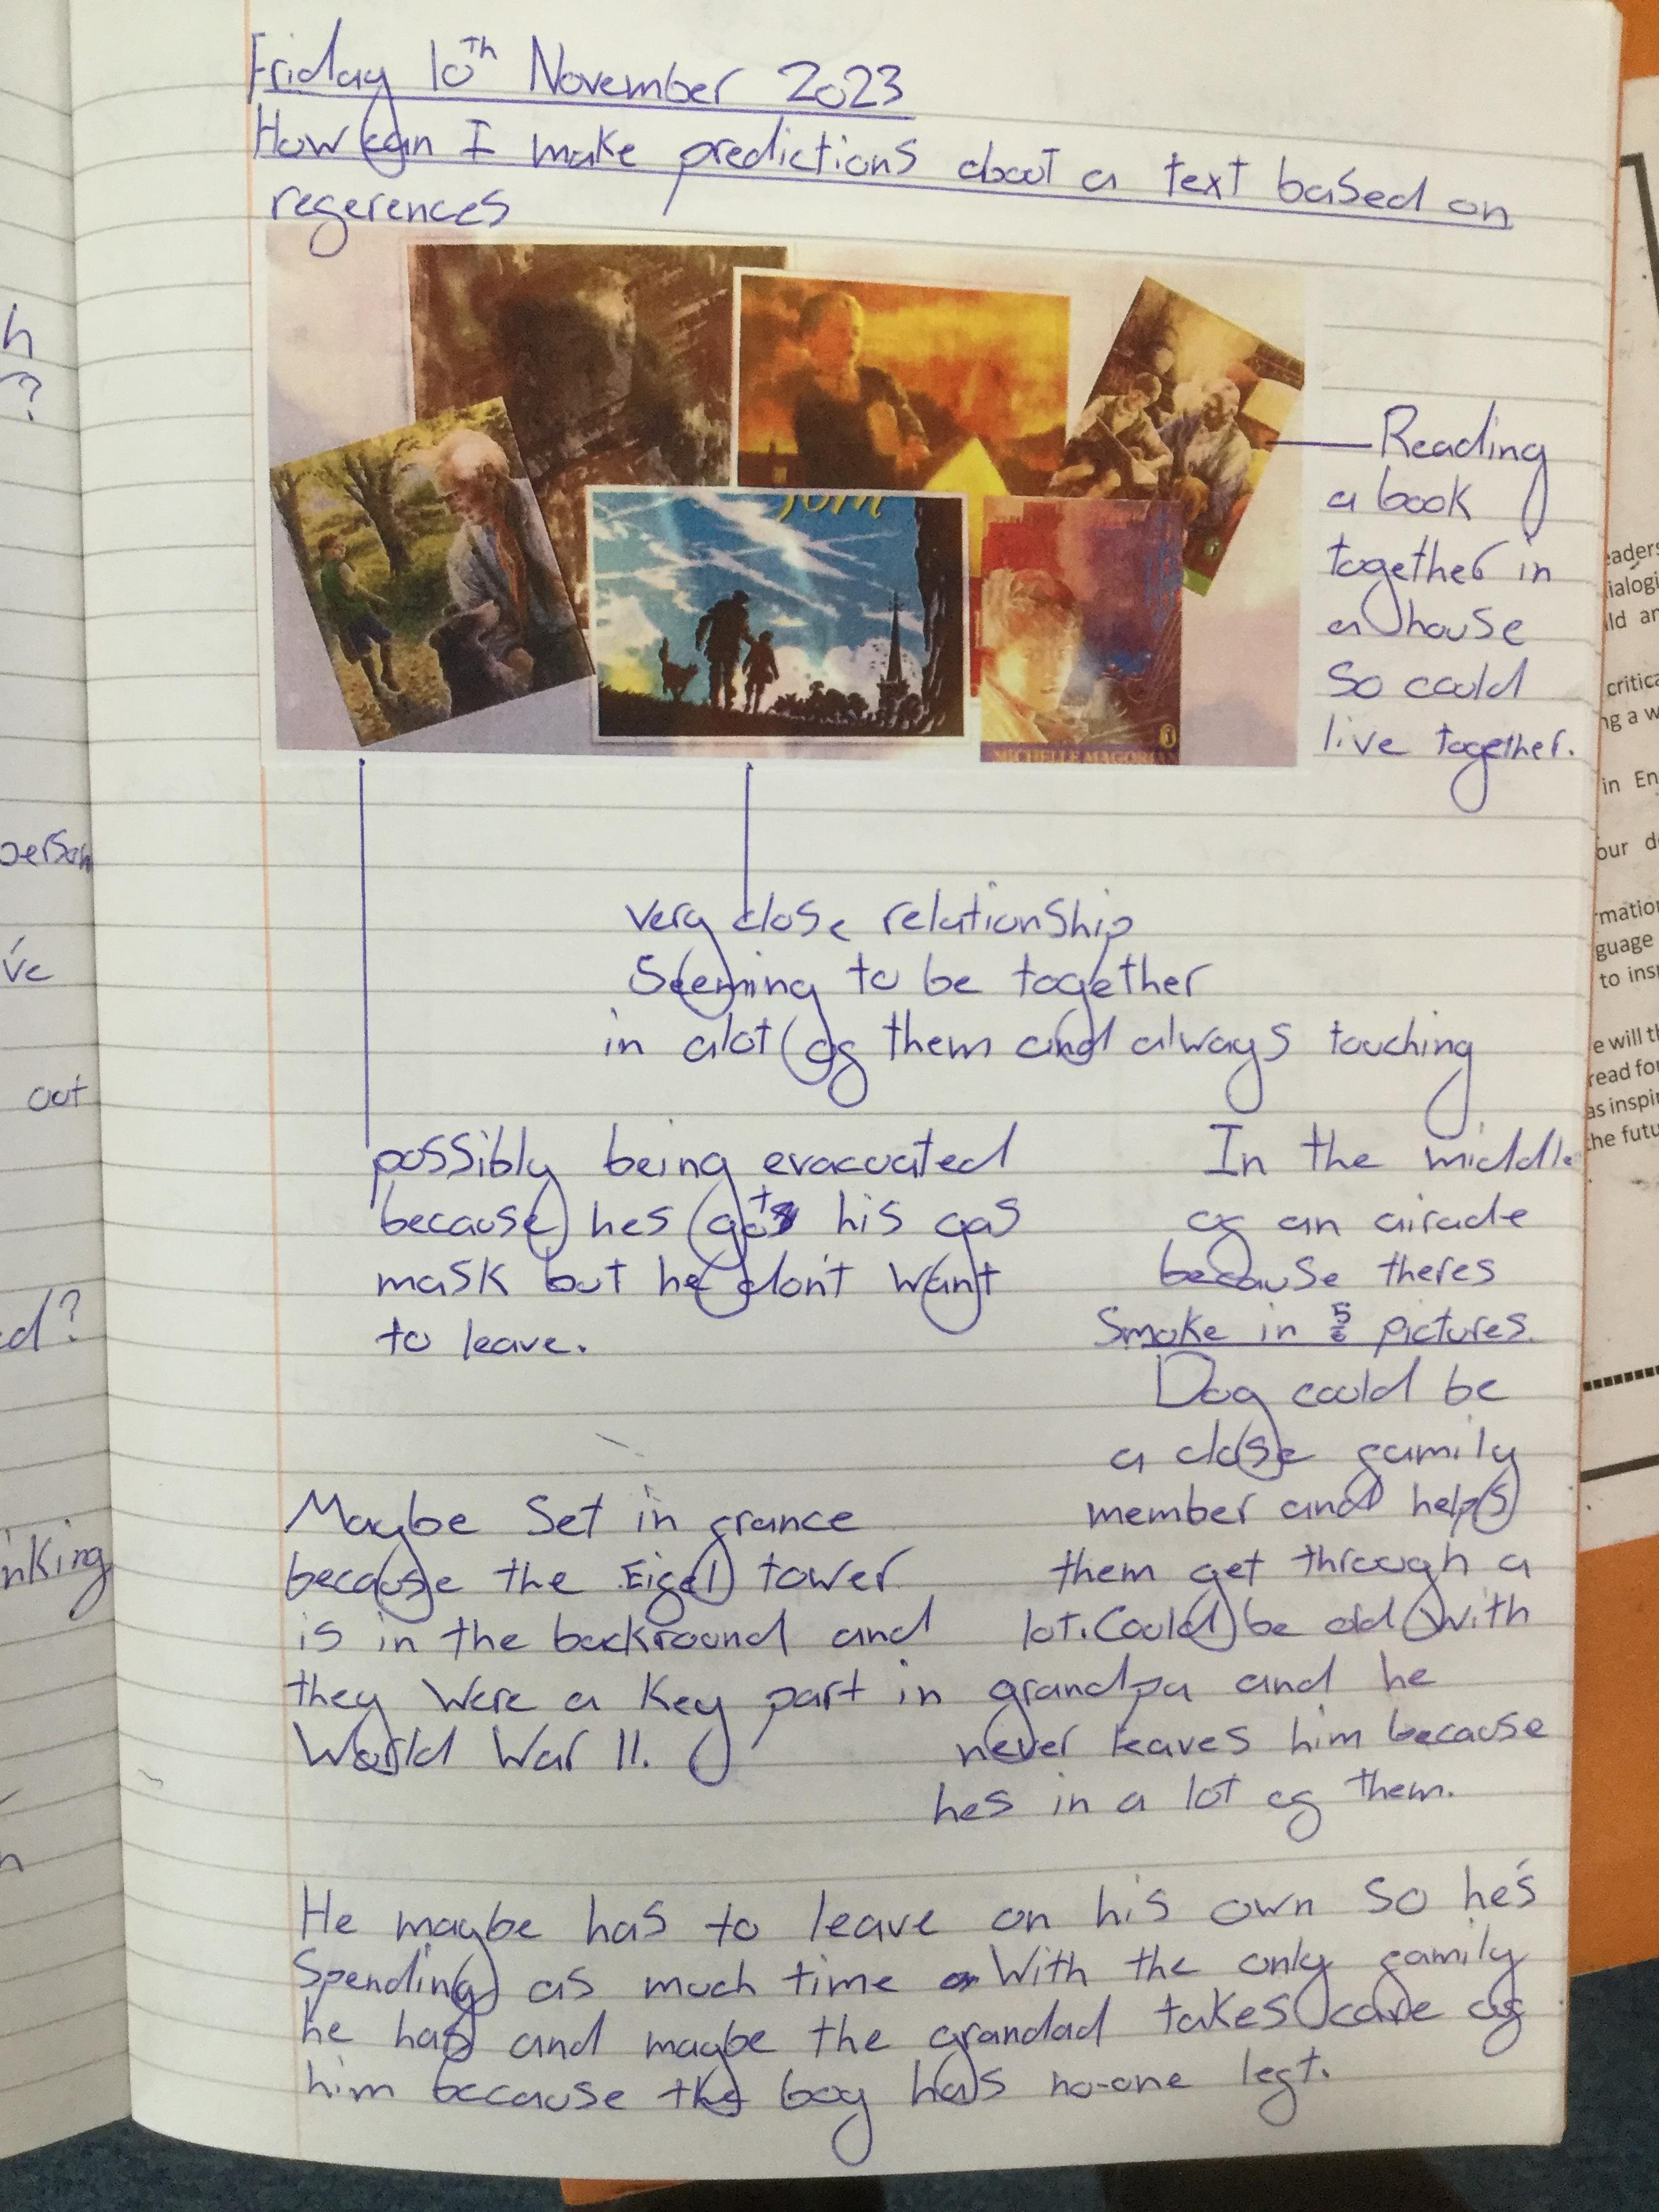 Friday 10th November 2023
How can I make predictions about a text based on
references
Tom
MICHELLE MAGORIAN
Reading
a book
together in
a house
so could
live together.
very close relationship
Seeming to be together
in alot of them and always touching
possibly being evacuated
because hes got his gas
mask but he don't want
to leave.
In the middle
of an airade
because theres
Smoke in 5/6 pictures.
Dog could be
a close family
member and helps
them get through a
lot. Could be old with
grandpa and he
never leaves him because
hes in a lot of them.
Maybe Set in france
because the Eifel tower
is in the backround and
they were a key part in
World War II.
He maybe has to leave on his own so he's
Spending as much time with the only family
he has and maybe the grandad takes care of
him because the boy has no-one left.
person
out